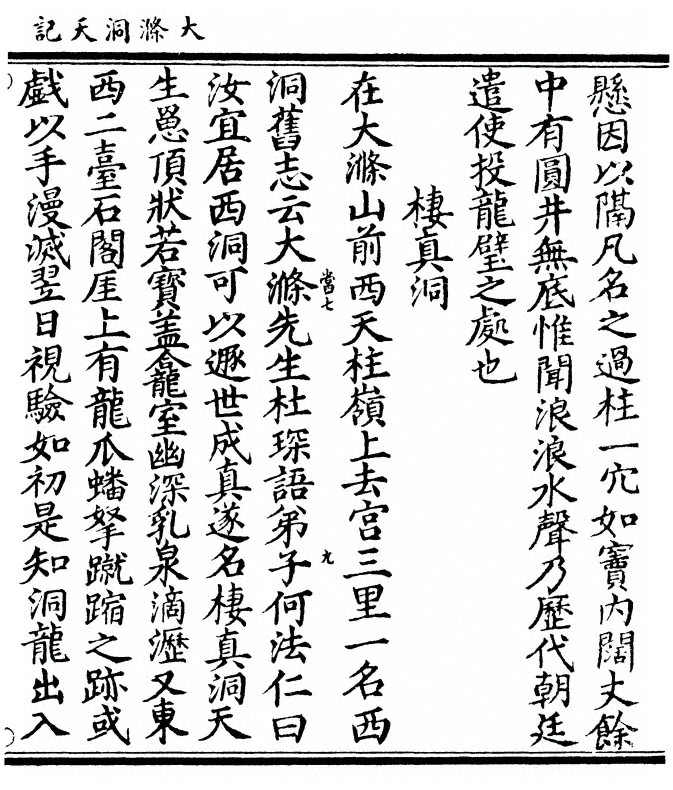 大滌洞天記
懸因以隔凡名之過柱一穴如竇内闊丈餘
中有圓井無底惟聞浪浪水聲乃歷代朝廷
遣使投龍璧之處也
棲真洞
在大滌山前西天柱嶺上去宮三里一名西
洞舊志云大滌先生杜琛語弟子何法仁曰
當七
九
汝宜居西洞可以遯世成真遂名棲真洞天
生鬯頂狀若寳盖龕室幽深乳泉滴瀝又東
西二臺石閣厓上有龍爪蟠拏蹴蹜之跡或
戲以手漫滅翌日視驗如初是知洞龍出入